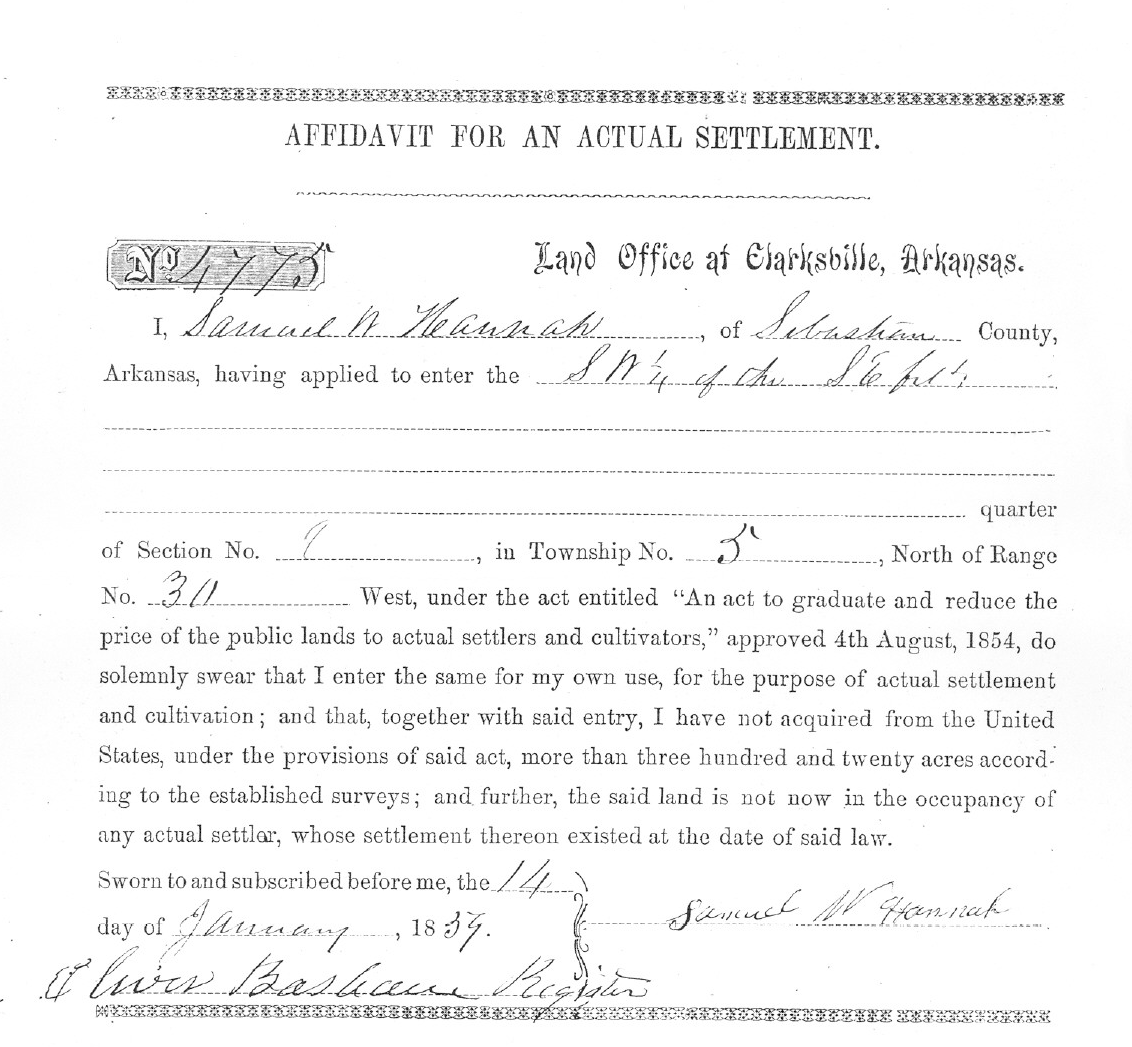 AFFIDAVIT FOR AN ACTUAL SETTLEMENT.
No 4775 Land Office at Clarksville, Arkansas.
I, Samuel W Hannah, of Sebastian County,
Arkansas, having applied to enter the SW ¼ of the SE frl
quarter
of Section No. , in Township No. 5, North of Range
No. 30 West, under the act entitled "An act to graduate and reduce the
price of the public lands to actual settlers and cultivators," approved 4th August, 1854, do
solemnly swear that I enter the same for my own use, for the purpose of actual settlement
and cultivation; and that, together with said entry, I have not acquired from the United
States, under the provisions of said act, more than three hundred and twenty acres accord-
ing to the established surveys; and further, the said land is not now in the occupancy of
any actual settler, whose settlement thereon existed at the date of said law.
Sworn to and subscribed before me, the 14
day of January, 1859. Samuel W Hannah
Oliver Basham Register